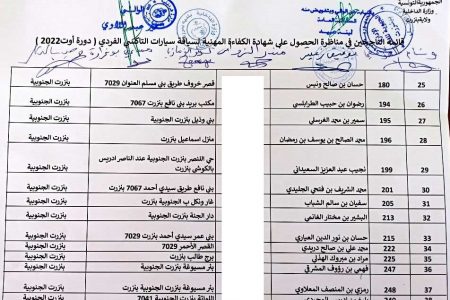 الجمهورية التونسية
وزارة الداخلية
ولاية بنزرت
قائمة الناجحين في مناظرة الحصول على شهادة الكفاءة المهنية لسياقة سيارات التاكسي الفردي ( دورة أوت2022)
25 180 حسان بن صالح ونيس قصر خروف طريق بني مسلم العنوان 7029 بنزرت الجنوبية
26 194 رضوان بن حبيب الطرابلسي مكتب بريد بني نافع 7067 بنزرت بنزرت الجنوبية
27 195 سمير بن محمد الغرسلي بني وذيل بنزرت بنزرت الجنوبية
28 196 محمد الصالح بن يوسف بن رمضان منزل اسماعيل بنزرت بنزرت الجنوبية
29 199 نجيب عبد العزيز السعيداني حي النصر بنزرت الجنوبية عند الناصر ادريس بالكوشي بنزرت بنزرت الجنوبية
30 201 محمد الشريف بن فتحي الجليدي بني نافع طريق سيدي أحمد 7067 بنزرت بنزرت الجنوبية
31 205 سفيان بن سالم الشباب غار ونكل ب الجنوبية بنزرت بنزرت الجنوبية
32 213 البشير بن مختار الغانمي دار الجنة بنزرت بنزرت الجنوبية
33 215 حسان بن نور الدين العياري بني عمر سيدي أحمد 7029 بنزرت بنزرت الجنوبية
34 222 محمد علي بن صالح دريدي القصر الأحمر 7029 بنزرت الجنوبية
35 225 مراد بن مبروك الهذلي برج طالب بنزرت بنزرت الجنوبية
36 247 فهمي بن رؤوف المشرقي بئر مسيوغة بنزرت بنزرت الجنوبية
37 248 رمزي بن المنصف المعلاوي بئر مسيوغة بنزرت الجنوبية بنزرت الجنوبية
7041 بنزرت الجنوبية